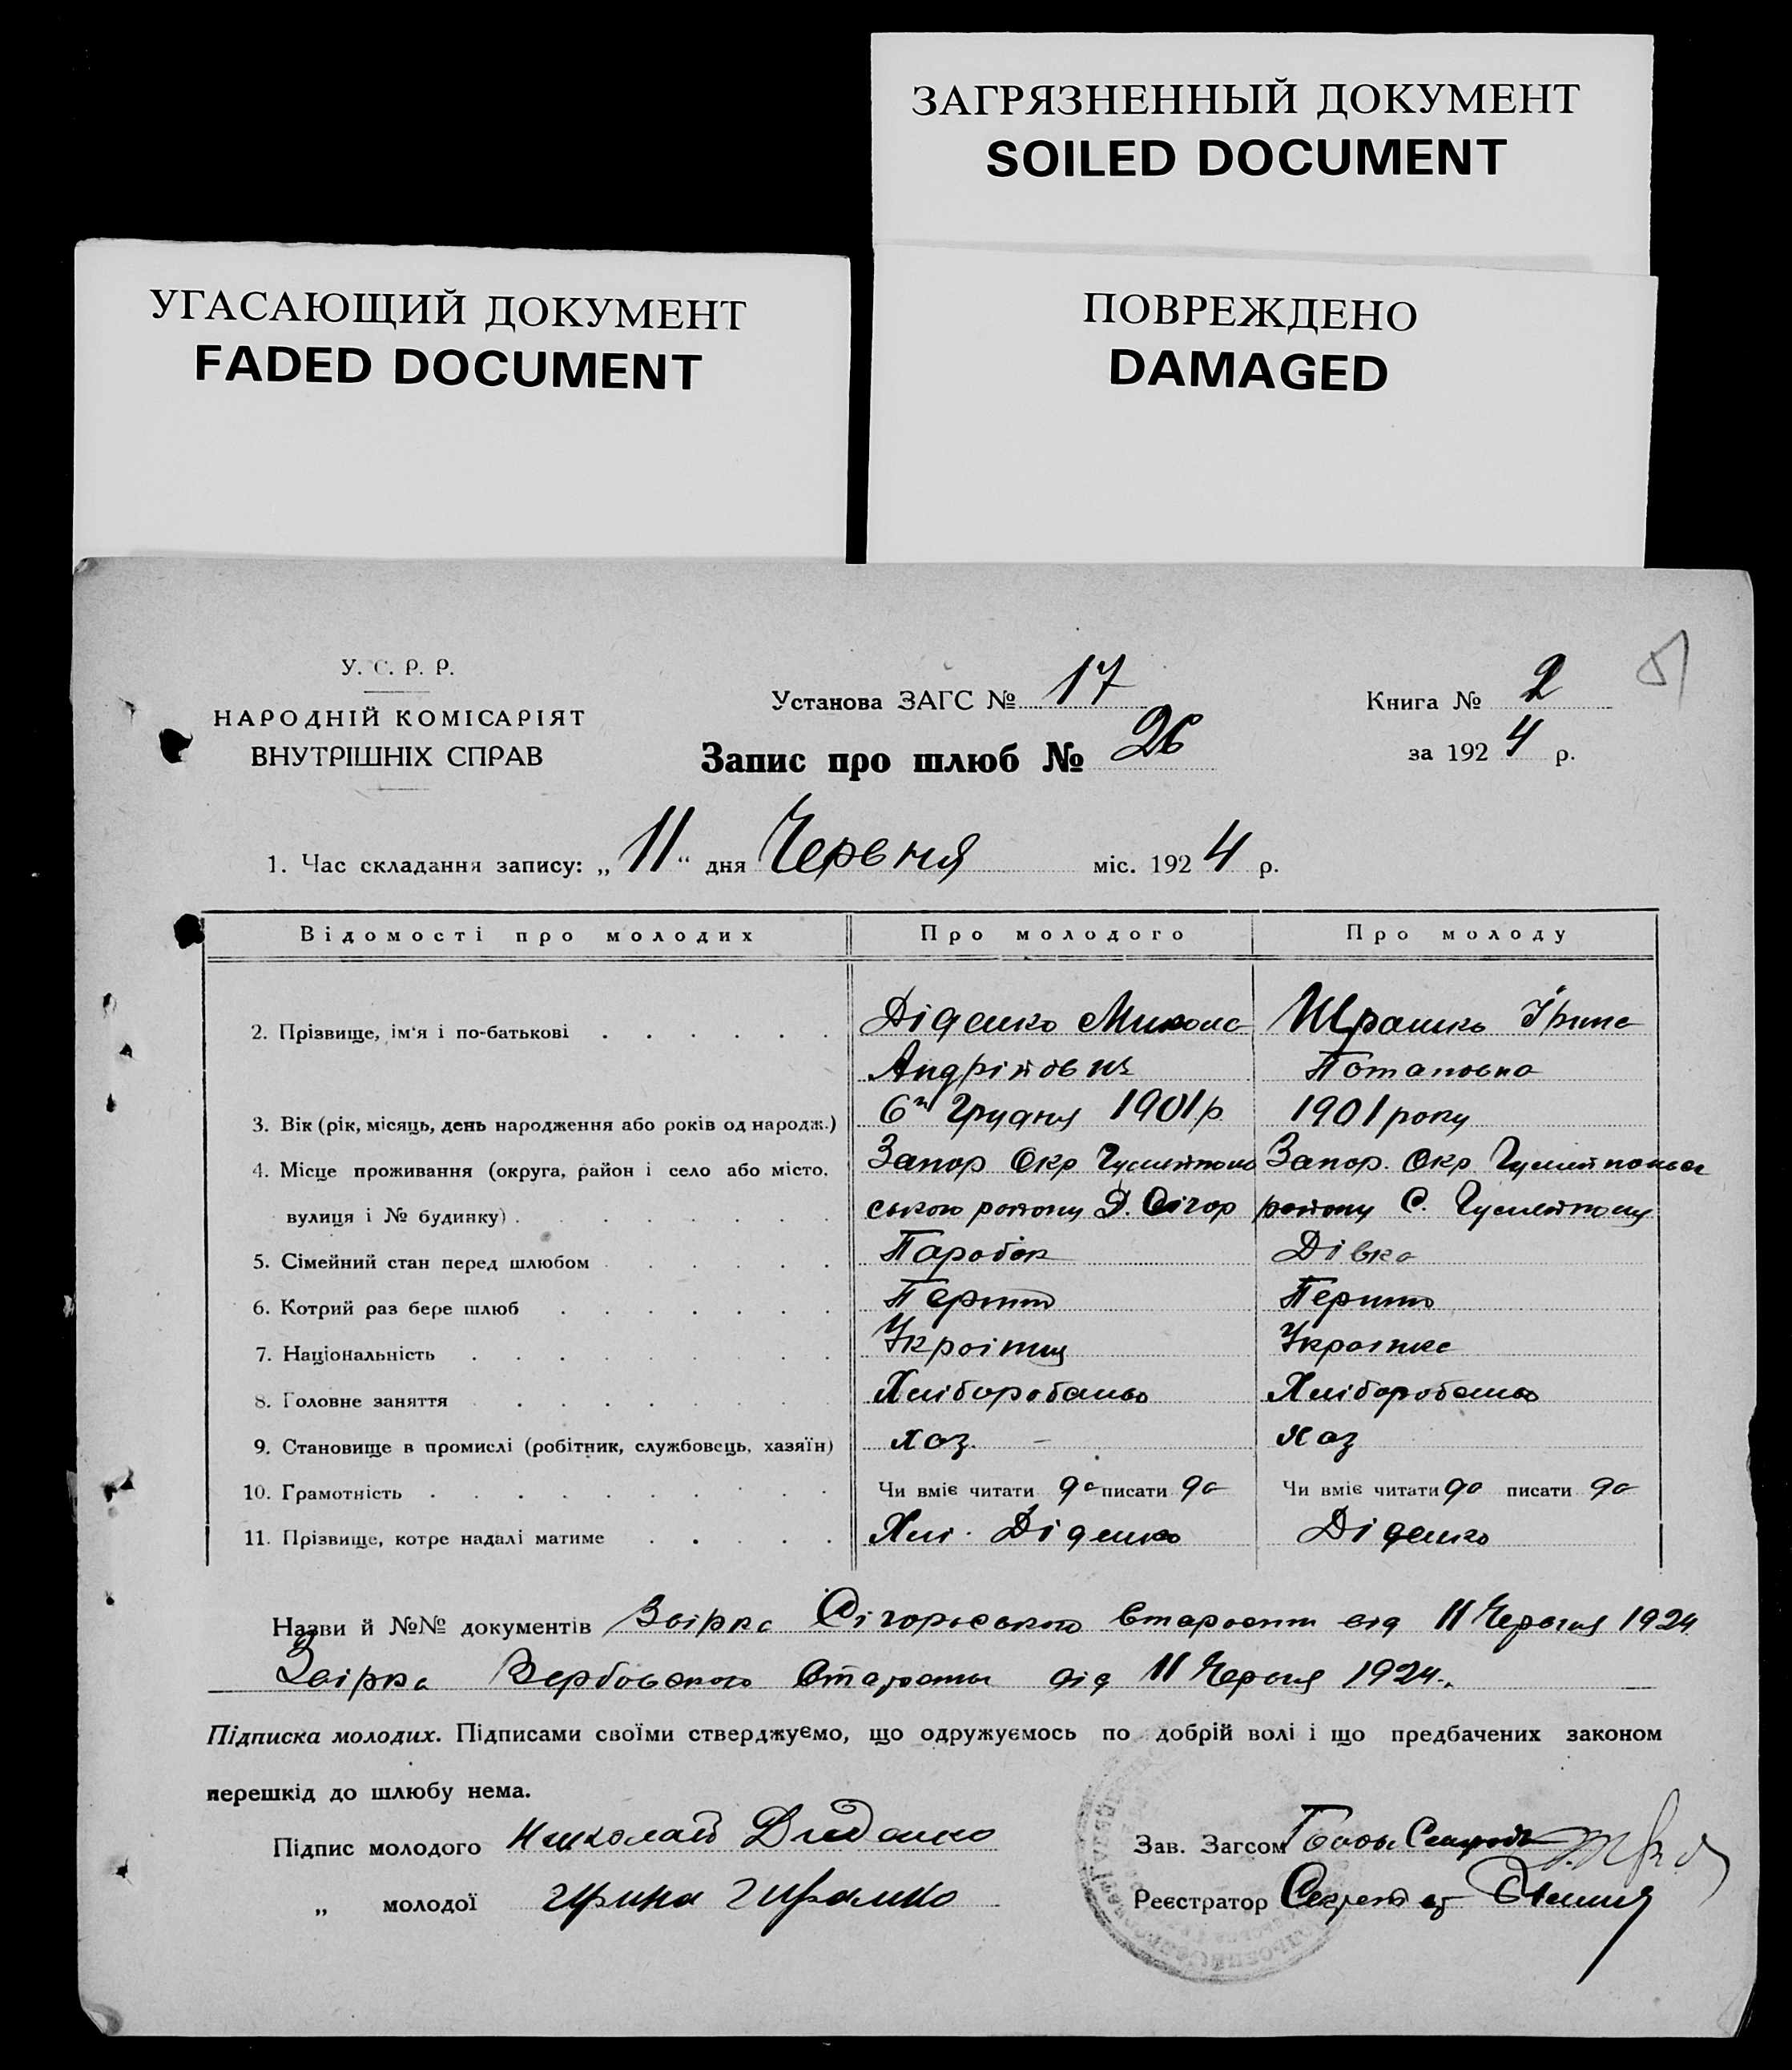 ЗАГРЯЗНЕННЫЙ ДОКУМЕНТ
SOILED DOCUMENT
УГАСАЮЩИЙ ДОКУМЕНТ
FADED DOCUMENT
ПОВРЕЖДЕНО
DAMAGED
У. С. Р. Р.
НАРОДНІЙ КОМІСАРІЯТ
ВНУТРІШНІХ СПРАВ
Установа ЗАГС № 17
Запис про шлюб № 26
Книга № 2
за 1924 р.
1. Час складання запису: „11“ дня Червня міс. 1924 р.
Відомості про молодих Про молодого Про молоду
2. Прізвище, ім'я і по-батькові Діденко Микола Ірина
Андрійович Потаповна
3. Вік (рік, місяць, день народження або років од народж.) 6 Грудня 1901 р 1901 року
4. Місце проживання (округа, район і село або місто, Запор Окр Запор. Окр
вулиця і № будинку) ського району району С.
5. Сімейний стан перед шлюбом Паробок Дівка
6. Котрий раз бере шлюб Перший Перший
7. Національність Українець Українка
8. Головне заняття Хліборобство Хліборобство
9. Становище в промислі (робітник, службовець, хазяїн) хаз. хаз
10. Грамотність Чи вміє читати да писати да Чи вміє читати да писати да
11. Прізвище, котре надалі матиме Діденко Діденко
Назви й №№ документів від 11 Червня 1924
Вербовського від 11 Червня 1924.
Підписка молодих. Підписами своїми стверджуємо, що одружуємось по добрій волі і що предбачених законом
перешкід до шлюбу нема.
Підпис молодого Николай Диденко
„ молодої Ирина
Зав. Загсом
Реєстратор Секретар